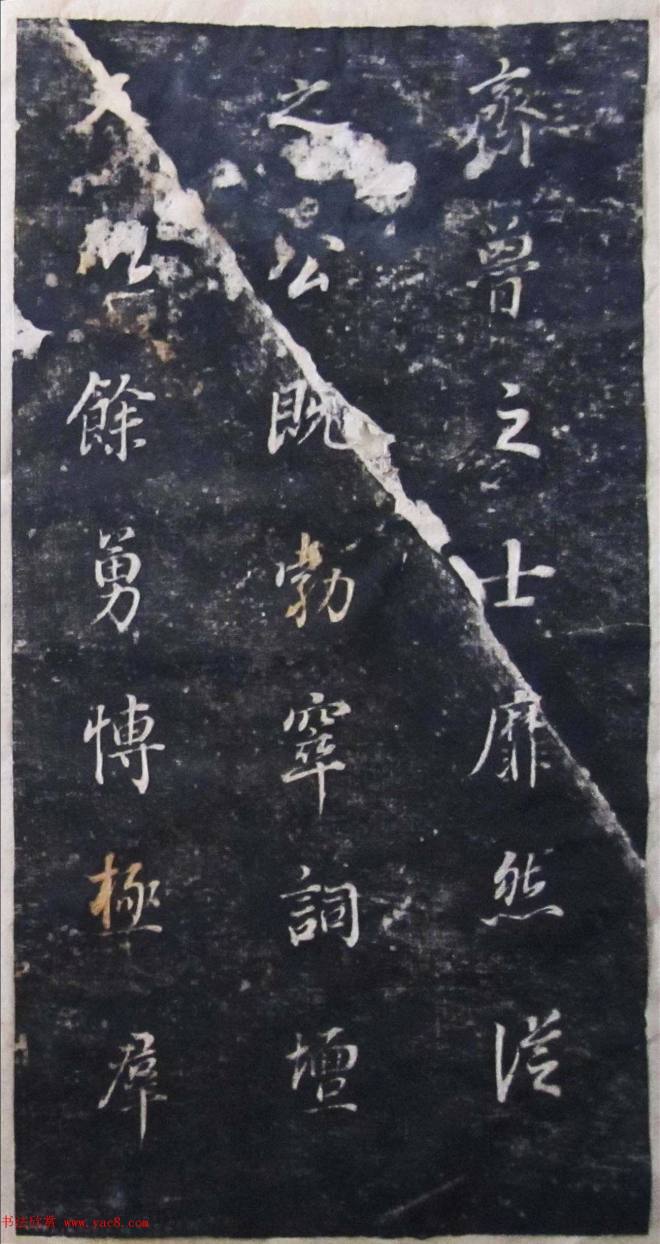 齊魯之士靡然從
之公既勃窣詞壇
又以餘勇愽極羣
书法欣赏 www.yac8.com